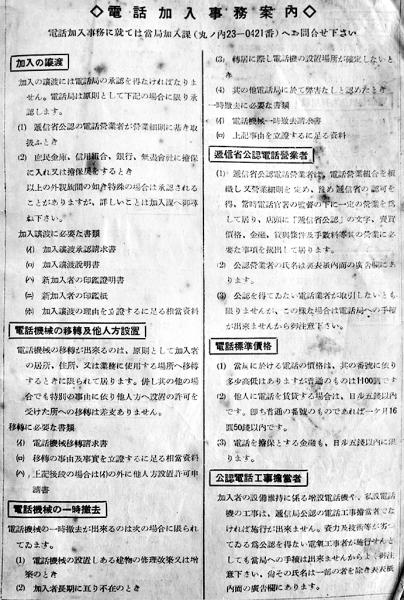 ◇電話加入事務案内◇
電話加入事務に就ては當局加入課(丸ノ内23—0421番)へお問合せ下さい
加入の譲渡
加入の譲渡には電話局の承認を得たければなりま
せん。電話局は原則として下記の場合に限り承
認します。
(1) 遞信省公認の電話營業者が營業細則に基き取
扱ふとき
(2) 庶民金庫、信用組合、銀行、無盡會社に擔保
に入れ又は擔保流をするとき
以上の外親族間の如き特殊の場合は承認される
ことがありますが、詳しいことは加入課へ御尋
ね下さい。
加入譲渡に必要な書類
(イ) 加入譲渡承認請求書
(ロ) 加入譲渡説明書
(ハ) 新加入者の印鑑證明書
(ニ) 新加入者の印鑑紙
(ホ) 加入譲渡の理由を立證するに足る相當資料
電話機械の移轉及他人方設置
電話機械の移轉が出來るのは、原則として加入者
の居所、住所、又は業務に使用する場所へ移轉
するときに限られて居ります。倂し其の他の場
合でも特別の事由に依り他人方へ設置の許可を
受けた所への移轉は差支ありません。
移轉に必要な書類
(イ) 電話機械移轉請求書
(ロ) 移轉の事由及事實を立證するに足る相當資料
(ハ) 上記後段の場合は(イ)の外に他人方設置許可申
請書
電話機械の一時撤去
電話機械の一時撤去が出來るのは次の場合に限られ
てゐます。
(1) 電話機の設置しある建物の修理改築又は増
築のとき
(2) 加入者長期に亘り不在のとき
(3) 轉居に際し電話機の設置場所が確定しないと
き
(4) 其の他電話局に於て弊害なしと認めたとき
一時撤去に必要な書類
(イ) 電話機械一時撤去請求書
(ロ) 上記事由を立證するに足る資料
遞信省公認電話營業者
(1) 遞信省公認電話營業者は、電話營業組合を組
織し又營業細則を定め、豫め遞信省の認可を
得、常時電話官署の監督の下に一定の營業を爲
して居り、店頭に「遞信省公認」の文字、賣買
價格、金融、貸與條件及手數料等其の營業に必
要な事項を掲出して居ります。
(2) 公認營業者の氏名は裏表紙内面の廣告欄にあ
ります。
(3) 公認を得てゐない電話業者が取引しないとも
限りませんが、この様な場合は電話局への手續
が出來ませんから御注意下さい。
電話標準價格
(1) 當局に於ける電話の價格は、其の番號に依り
多少高低はありますが普通のものは1100圓です
(2) 他人に電話を賃貸する場合は、日ル五錢以内
です。卽ち普通の番號のものであれば一ケ月16
圓50錢以内です。
(3) 電話を擔保とする金融も、日ル五錢以内に限
ります。
公認電話工事擔當者
加入者の設備維持に係る増設電話機や、私設電話
機の工事は、遞信局公認の電話工事擔當者でな
ければ施行が出來ません。資力及技術等が劣つ
てゐる爲公認を得ない電氣工事者が施行せんと
しても當局への手續は出來ませんからよく御注
意下さい。尙その氏名は一部の者を除き表表紙
内面の廣告欄にあります。